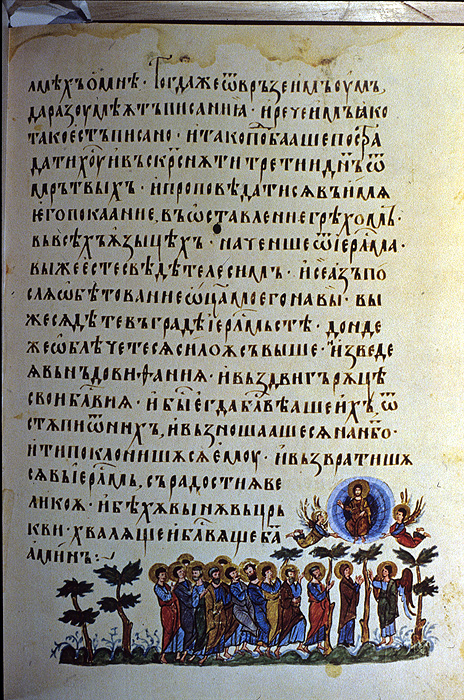 лмѣхъ ѡ мнѣ · Тогда же ѿвръзе имъ оумъ
да разоумѣѫтъ писаниꙗ · и рече имъ ꙗко
тако естъ писано · и тако пѡбааше пострада
ти хꙋ҃ и въскрⸯснѫти третии дн҃ь ѿ
мрътвыхъ · и проповѣдатисѧ въ имѧ
ѥго покаание, въ ѡставление грѣхомь ·
въ всѣхъ ѧзыцѣхъ · наченше ѿ іерⷭ҇лма ·
вы же есте свѣдѣтеле симъ · и се азъ по
слѧ ѡбѣтование ѡц҃а моего на вы · вы
же сѧдѣте въ градѣ іерⷭ҇лмьстѣ · донде
же ѡблѣчетесѧ силоѫ съвыше · Изведе
ѧ вънъ до виѳаниѧ · и въздвигъ рѫцѣ
свои бл҃ви ѧ · и бы́ егда бл҃вѣаше ихъ, ѿ
стѫпи ѿ нихъ, и възношаашесѧ на нб҃о ·
и ти поклонишѫсѧ ємоу · и възвратишѫ
сѧ въ іерⷭ҇лмь, съ радостиѫ ве
ликоѫ · и бѣхѫ вынѫ въ цръ
кви · хвалѧще и бл҃вѧще ба҃
аминъ :~